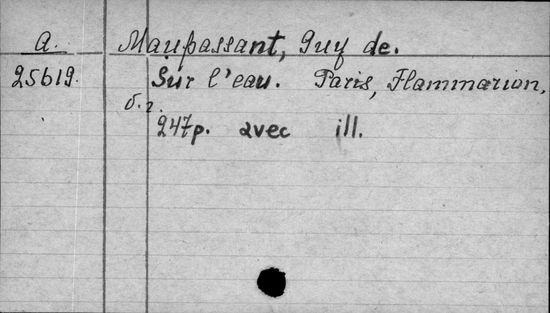 A. Maupassant, Guy de.
25619. Sur l'eau. Paris, Flammarion,
б.г.
247p. avec ill.